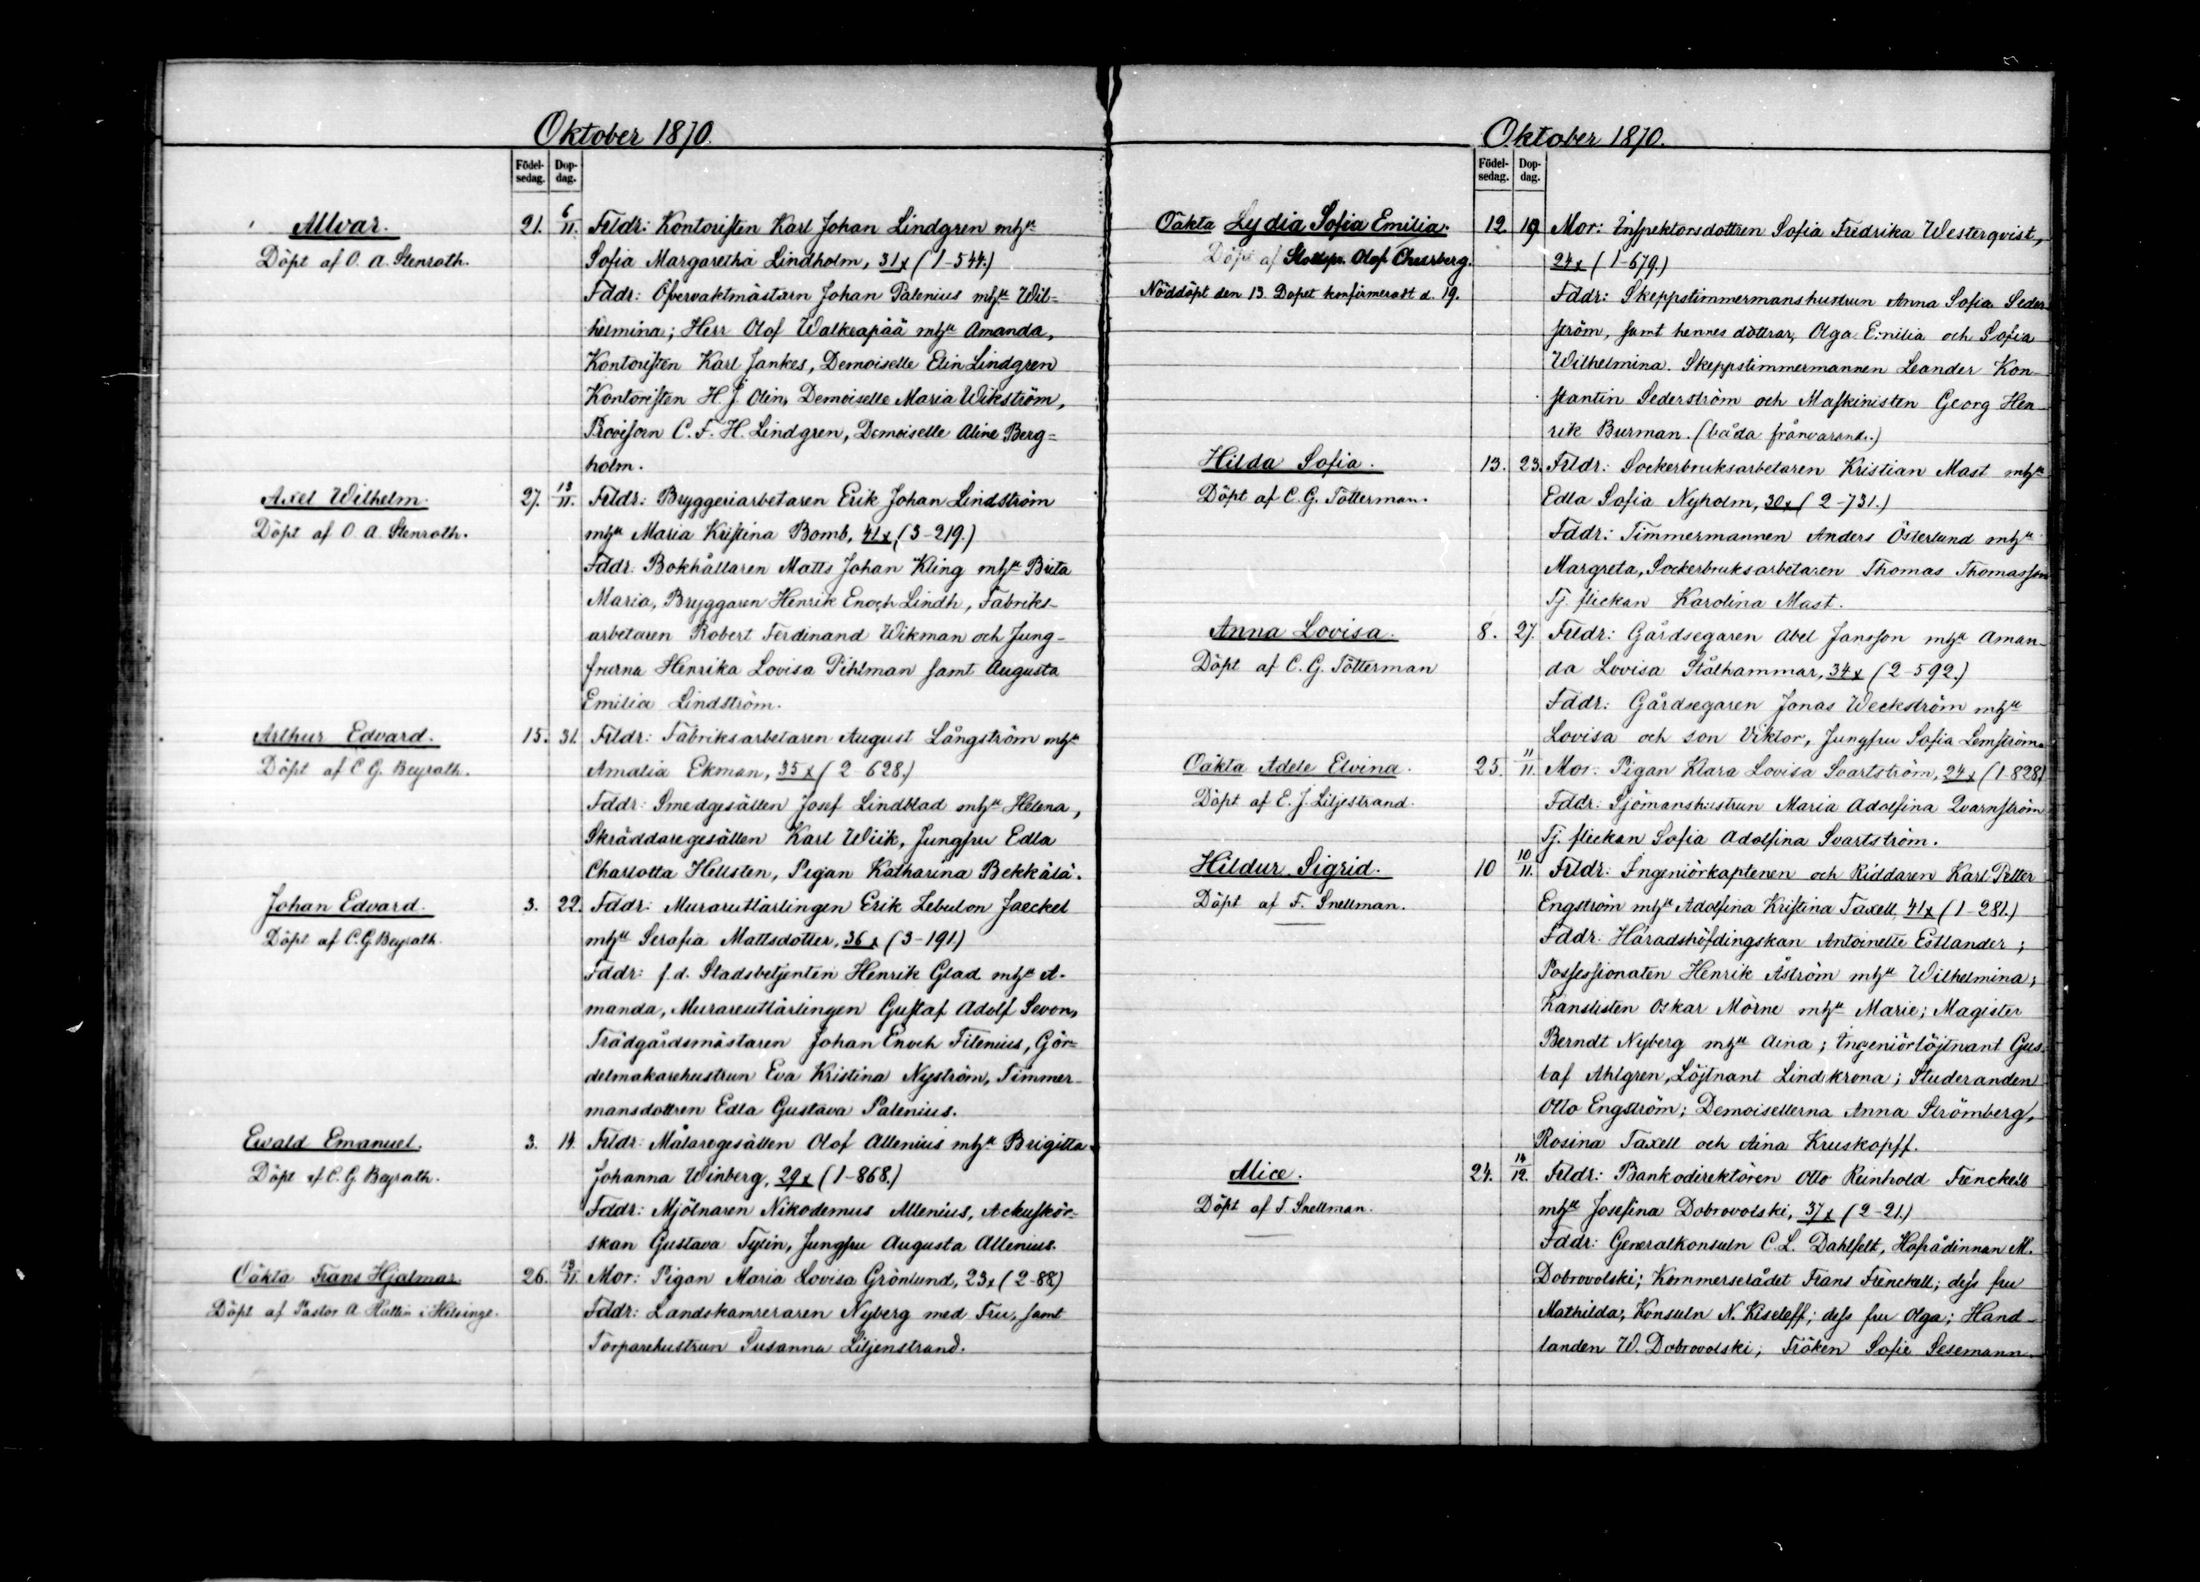 Oktober 1870.
Födel-
sedag.
Dop-
dag.
Allvar.
Döpt af O. A. Stenroth.
21.
6/11.
Frldr: Kontoristen Karl Johan Lindgren mhu
Sofia Margaretha Lindholm, 31x (1-544.)
Fddr: Öfvervaktmästarn Johan Palenius mhu Wil=
helmina; Herr Olof Walkeapää mhu Amanda,
Kontoristen Karl Jankes, Demoiselle Elin Lindgren
Kontoristen H. J. Olin, Demoiselle Maria Wikström,
Provisorn C. F. H. Lindgren, Demoiselle Aline Berg=
holm.
Axel Wilhelm.
Döpt af O. A. Stenroth.
27.
13/11.
Frldr: Bryggeriarbetaren Erik Johan Lindström
mhu Maria Kristina Bomb, 41x, (3-219.)
Fddr: Bokhållaren Matts Johan Kling mhu Brita
Maria, Bryggaren Henrik Enoch Lindh, Fabriks-
arbetaren Robert Ferdinand Wikman och Jung-
frurna Henrika Lovisa Pihlman samt Augusta
Emilia Lindström.
Arthur Edvard.
Döpt af C. G. Beyrath.
15.
31.
Frldr: Fabriksarbetaren August Långström mhu
Amalia Ekman, 35x (2-628.)
Fddr: Smedgesällen Josef Lindblad mhu Helena,
Skräddaregesällen Karl Wiik, Jungfru Edla
Charlotta Hellsten, Pigan Katharina Bekkälä.
Johan Edvard.
Döpt af C. G. Beyrath.
3.
22.
Fddr: Murareuttärlingen Erik Zebulon Jaeckel
mhu Serafia Mattsdotter, 36x (3-191.)
Fddr: f. d. Stadsbetjenten Henrik Glad mhu A-
manda, Murareuttärlingen Gustaf Adolf Sevon,
Trädgårdsmästaren Johan Enoch Filenius, Gör=
delmakarehustrun Eva Kristina Nyström, Timmer-
mansdottren Edla Gustava Palenius.
Evald Emanuel.
Döpt af C. G. Beyrath.
3.
14.
Frldr: Målaregesällen Olof Allenius mhu Brigitta
Johanna Winberg, 29x (1-868.)
Fddr: Mjölnaren Nikodemus Allenius, Ackuskör-
skan Gustava Tylin, Jungfru Augusta Allenius.
Oäkta Frans Hjalmar.
Döpt af Pastor A. Hallin i Helsinge.
26.
13/11.
Mor: Pigan Maria Lovisa Grönlund, 23x (2-88)
Fddr: Landskamreraren Nyberg med Fru, samt
Torparehustrun Susanna Liljenstrand.
Oktober 1870.
Födel-
sedag.
Dop-
dag.
Oäkta Lydia Sofia Emilia.
Döpt af Slottspr. Olof
Nöddöpt den 13. Dopet konfirmeradt d. 19.
12.
19
Mor: Inspektorsdottren Sofia Fredrika Westerqvist,
24x (1-679.)
Fddr: Skeppstimmermanshustrun Anna Sofia Seder
ström, samt hennes döttrar, Olga Emilia och Sofia
Wilhelmina. Skeppstimmermannen Leander Kon-
stantin Sederström och Maskinisten Georg Hen-
rik Burman. (båda frånvarande.)
Hilda Sofia.
Döpt af C. G. Totterman.
13.
23.
Frldr: Sockerbruksarbetaren Kristian Mast mhu
Edla Sofia Nyholm, 30x (2-731.)
Fddr: Timmermannen Anders Österlund mhu
Margreta, Sockerbruksarbetaren Thomas Thomasson
Tj. flickan Karolina Mast.
Anna Lovisa.
Döpt af C. G. Tötterman
8.
27.
Frldr: Gårdsegaren Abel Jansson mhu Aman-
da Lovisa Stålhammar, 34x (2-592.)
Fddr: Gårdsegaren Jonas Weckström mhu
Lovisa och son Viktor, Jungfru Sofia Lemström.
Oäkta Adele Elvina.
Döpt af E. J. Liljestrand.
25.
11/11.
Mor: Pigan Klara Lovisa Svartström, 24x (1-828)
Fddr: Sjömanshustrun Maria Adolfina Qvarnström
Tj. flickan Sofia Adolfina Svartström.
Hildur Sigrid.
Döpt af F. Snellman.
10
10/11.
Frldr: Ingeniörkaptenen och Riddaren Karl Petter
Engström mhu Adolfina Kristina Taxell, 41x (1-281.)
Fddr: Häradshöfdingskan Antoinette Estlander;
Possessionaten Henrik Åström mhu Wilhelmina;
Kanslisten Oskar Mörne mhu Marie; Magister
Berndt Nyberg mhu Aina; Ingeniörlöjtnant Gus-
taf Ahlgren, Löjtnant Lindkrona; Studeranden
Otto Engström; Demoisellerna Anna Strömberg,
Rosina Taxell och Aina Kruskopff.
Alice.
Döpt af F. Snellman.
24.
14/12.
Frldr: Bankodirektören Otto Reinhold Frenckell
mhu Josefina Dobrovolski, 37x (2-21.)
Fddr: Generalkonsuln C. L. Dahlfelt, Hofrådinnan M.
Dobrovolski; Kommerserådet Frans Frenckell; dess fru
Mathilda; Konsuln N. Kiseleff; dess fru Olga; Hand-
landen W. Dobrovolski; Fröken Sofie Sesemann.